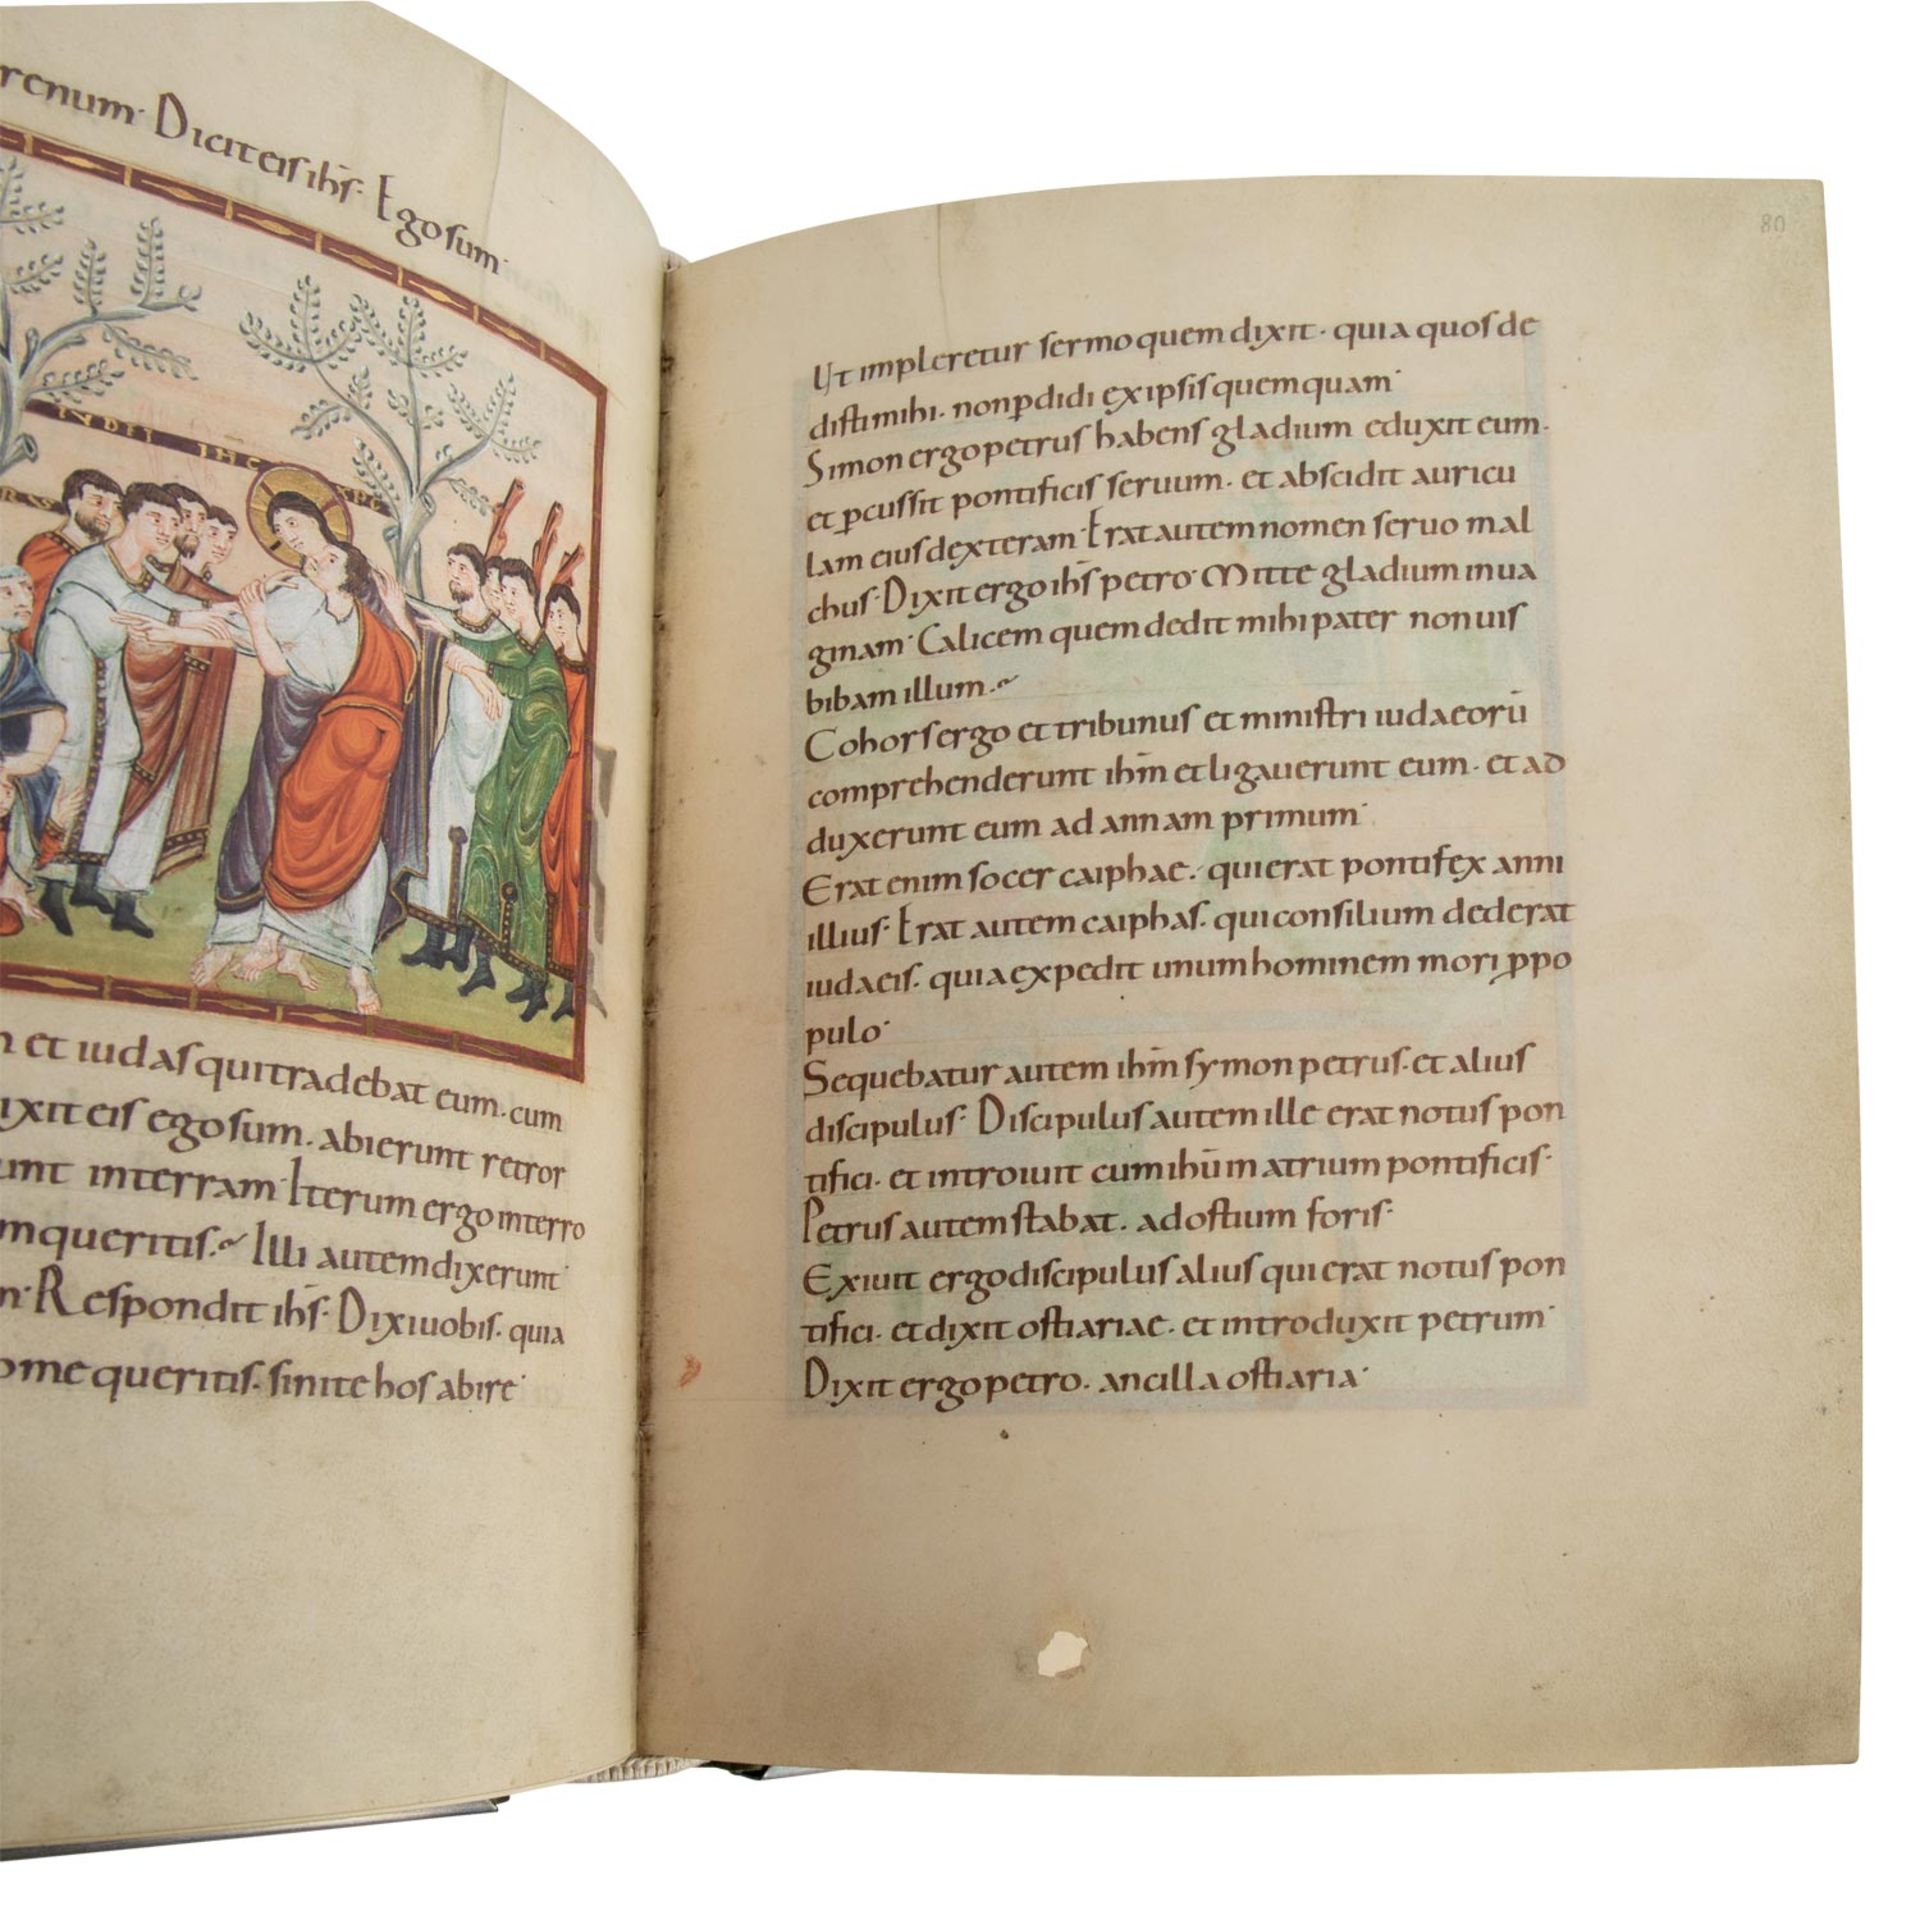 renum· Dicit eis ihs̄· Ego sum·
IVDEI IHC XPC
et iudas qui tradebat eum· cum
ixit eis ego sum· abierunt retror
unt in terram· Iterum ergo interro
m queritis· Illi autem dixerunt·
Respondit ihs̄· Dixi uobis· quia
me queritis· sinite hos abire·
80
Ut impleretur sermo quem dixit· quia quos de
disti mihi· non ꝑdidi ex ipsis quemquam·
Simon ergo petrus habens gladium eduxit eum·
et ꝑcussit pontificis seruum· et abscidit auricu
lam eius dexteram· Erat autem nomen seruo mal
chus· Dixit ergo ihs̄ petro· Mitte gladium in ua
ginam· Calicem quem dedit mihi pater non uis
bibam illum·
Cohors ergo et tribunus et ministri iudaeorū
comprehenderunt ihm̄ et ligauerunt eum· et ad
duxerunt eum ad annam primum·
Erat enim socer caiphae· qui erat pontifex anni
illius· Erat autem caiphas· qui consilium dederat
iudaeis· quia expedit unum hominem mori ꝓ po
pulo·
Sequebatur autem ihm̄ symon petrus· et alius
discipulus· Discipulus autem ille erat notus pon
tifici· et introiuit cum ihū in atrium pontificis·
Petrus autem stabat· ad ostium foris·
Exiuit ergo discipulus alius qui erat notus pon
tifici· et dixit ostiariae· et introduxit petrum·
Dixit ergo petro· ancilla ostiaria·